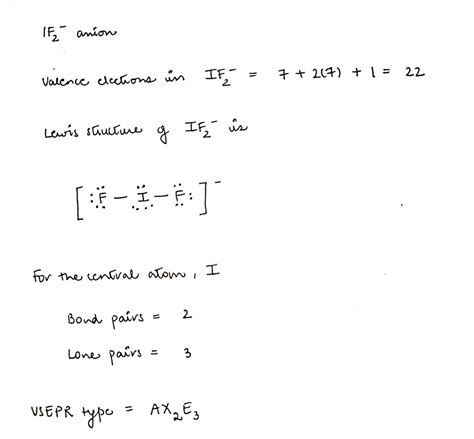 IF₂⁻ anion
Valence elections in IF₂⁻ = 7 + 2(7) + 1 = 22
Lewis structure of IF₂⁻ is
[:F̤̈ – I – F̤̈:]⁻
For the central atom, I
Bond pairs = 2
Lone pairs = 3
VSEPR type = AX₂E₃